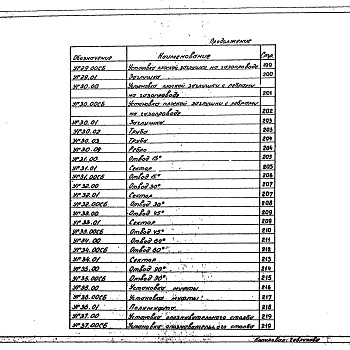 Продолжение
Обозначение Наименование Стр.
УГ 29.00СБ Установка плоской заглушки на газопроводе 199
УГ 29.01 Заглушка 200
УГ 30.00 Установка плоской заглушки с ребрами
на газопроводе 201
УГ 30.00СБ Установка плоской заглушки с ребрами
на газопроводе 202
УГ 30.01 Заглушка 203
УГ 30.02 Труба 203
УГ 30.03 Труба 204
УГ 30.04 Ребро 204
УГ 31.00 Отвод 15° 205
УГ 31.01 Сектор 205
УГ 31.00СБ Отвод 15° 206
УГ 32.00 Отвод 30° 207
УГ 32.01 Сектор 207
УГ 32.00СБ Отвод 30° 208
УГ 33.00 Отвод 45° 209
УГ 33.01 Сектор 209
УГ 33.00СБ Отвод 45° 210
УГ 34.00 Отвод 60° 211
УГ 34.00СБ Отвод 60° 212
УГ 34.01 Сектор 213
УГ 35.00 Отвод 90° 214
УГ 35.00СБ Отвод 90° 215
УГ 36.00 Установка муфты 216
УГ 36.00СБ Установка муфты 217
УГ 36.01 Полумуфта 218
УГ 37.00 Установка опознавательного столба 219
УГ 37.00СБ Установка опознавательного столба 219
Копировал: